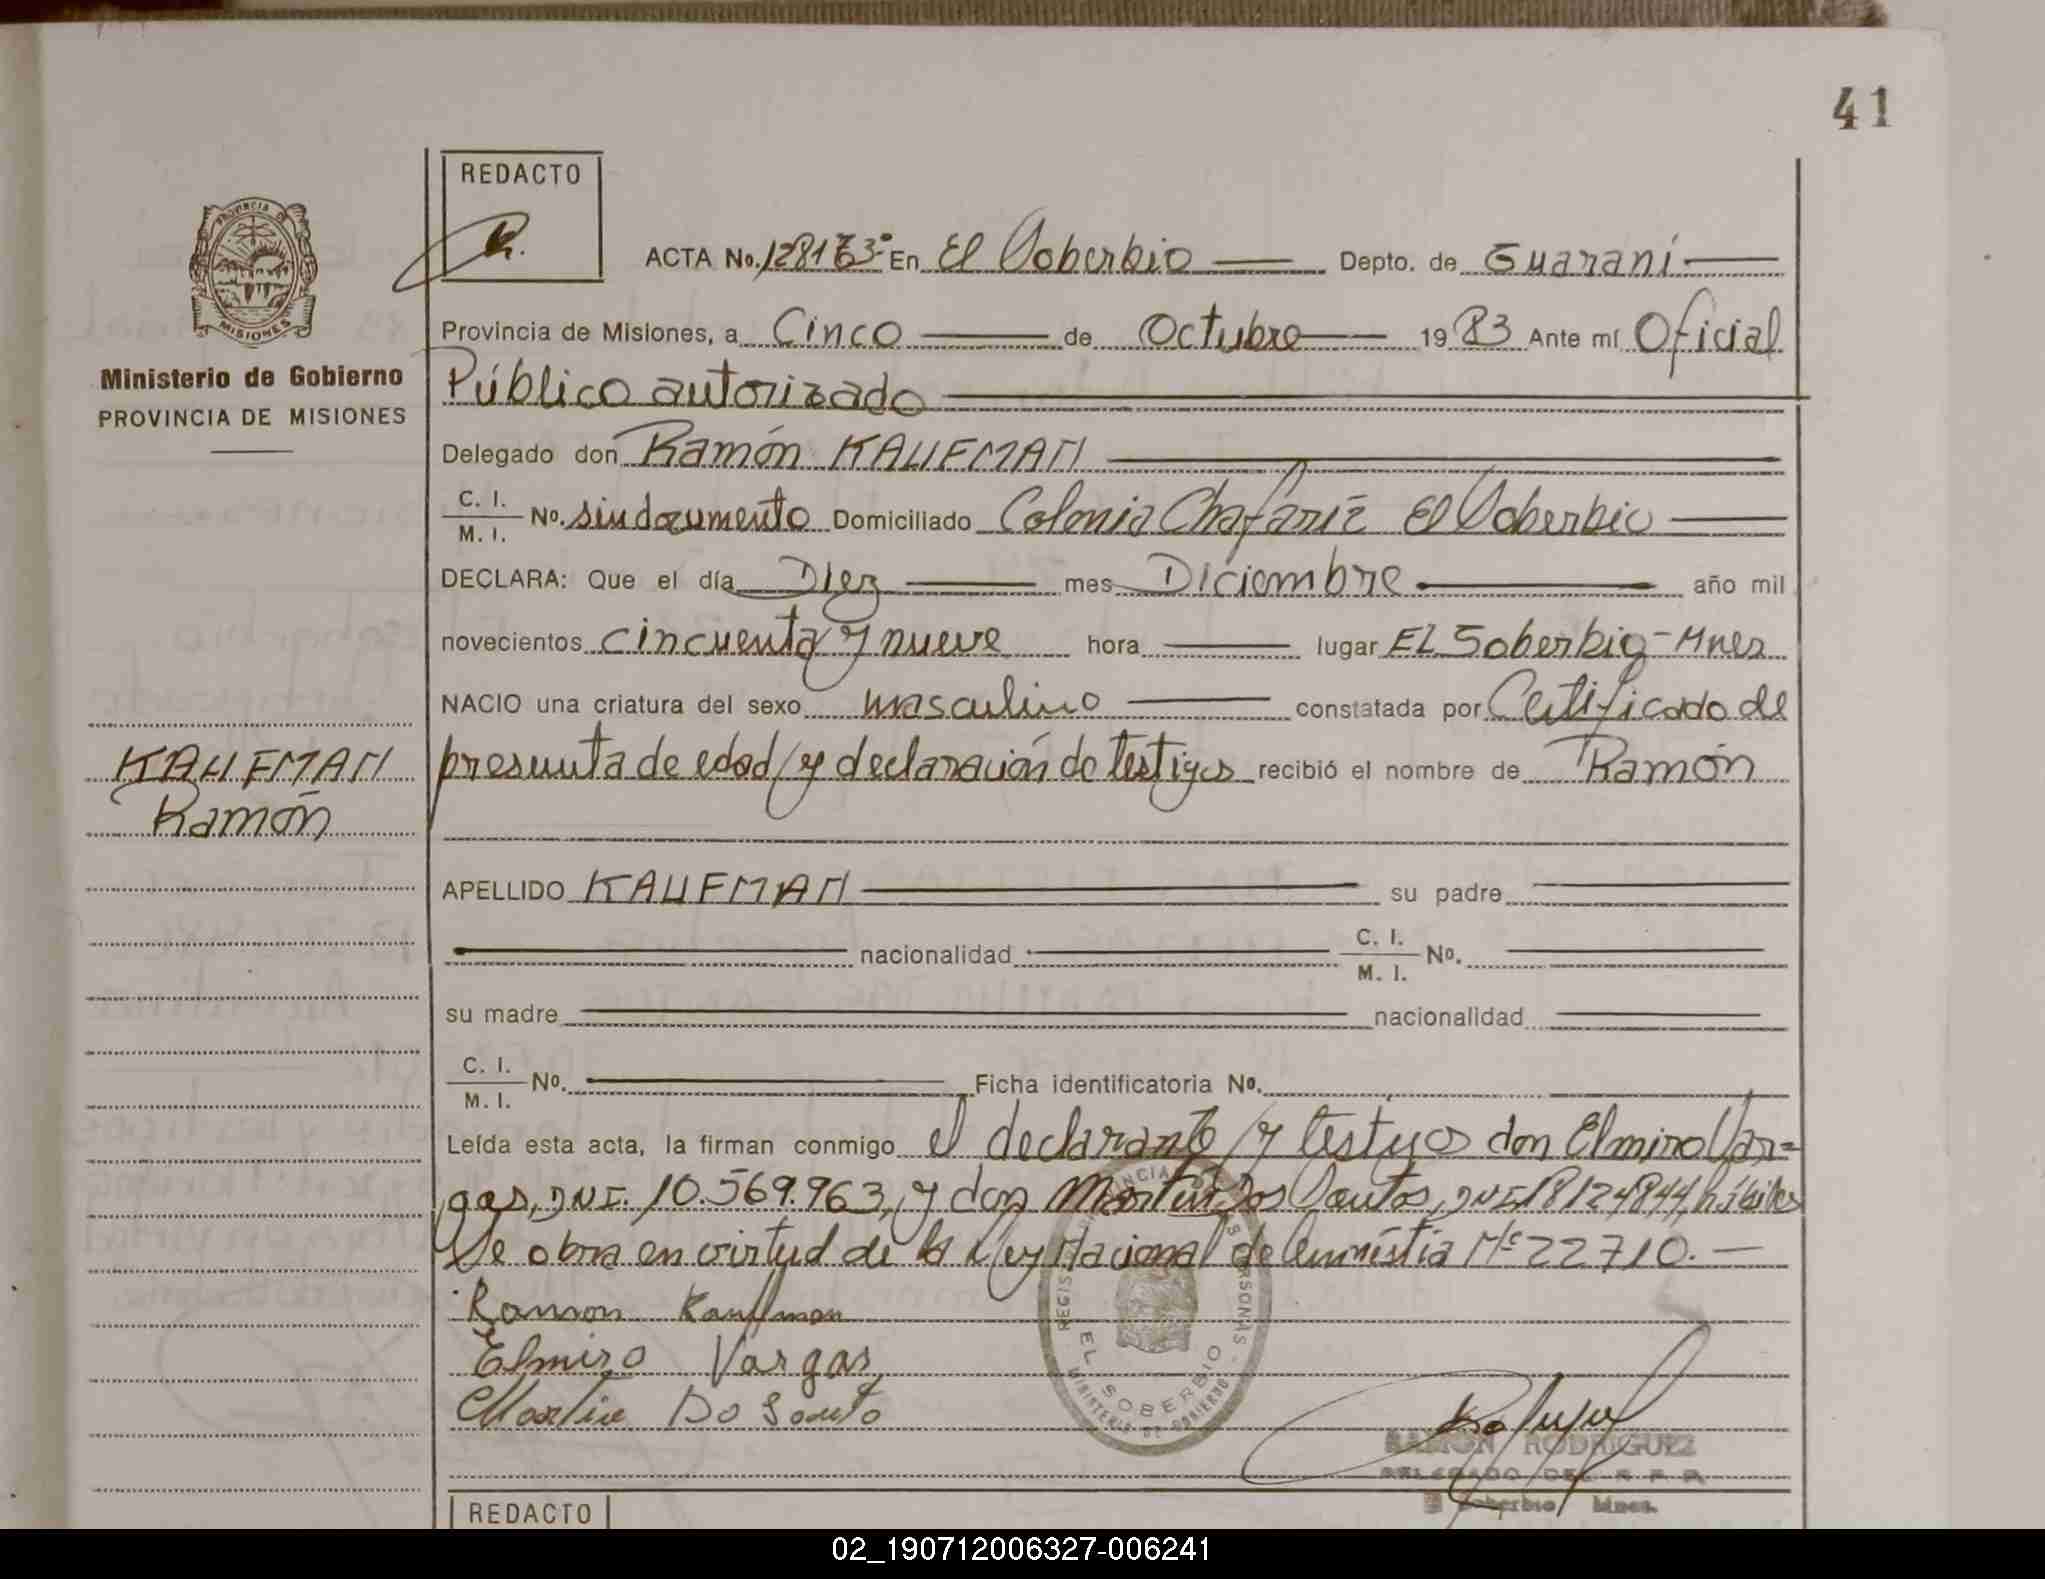 41
REDACTO
PROVINCIA DE
MISIONES
ACTA No. En El Soberbio Depto. de Guaraní
Provincia de Misiones, a Cinco de Octubre 1983 Ante mí Oficial
Ministerio de Gobierno
PROVINCIA DE MISIONES
Público autorizado
Delegado don Ramón KAUFMAN
C. I.
M. I. No. sin documento Domiciliado Colonia Chafaríz El Soberbio
DECLARA: Que el día Diez mes Diciembre año mil
novecientos cincuenta y nueve hora lugar EL Soberbio-Mnes
NACIO una criatura del sexo masculino constatada por Certificado de
KAUFMAN
Ramón
presunta de edad y declaración de testigos recibió el nombre de Ramón
APELLIDO KAUFMAN su padre
nacionalidad C. I.
M. I. No.
su madre nacionalidad
C. I.
M. I. No. Ficha identificatoria No.
Leída esta acta, la firman conmigo el declarante y testigos don Elmiro Var=
gas, DNI. 10.569.963, y don Martin Dos Santos, DNI 18124844, hábiles
Se obra en virtud de la Ley Nacional de Amnistia Nº 22710.-
Ramon Kaufman
Elmiro Vargas
Martin Do Santo
EL SOBERBIO
MINISTERIO DE GOBIERNO
RAMON RODRIGUEZ
DELEGADO DEL R. P. P.
El Soberbio Mnes.
REDACTO
02_190712006327-006241